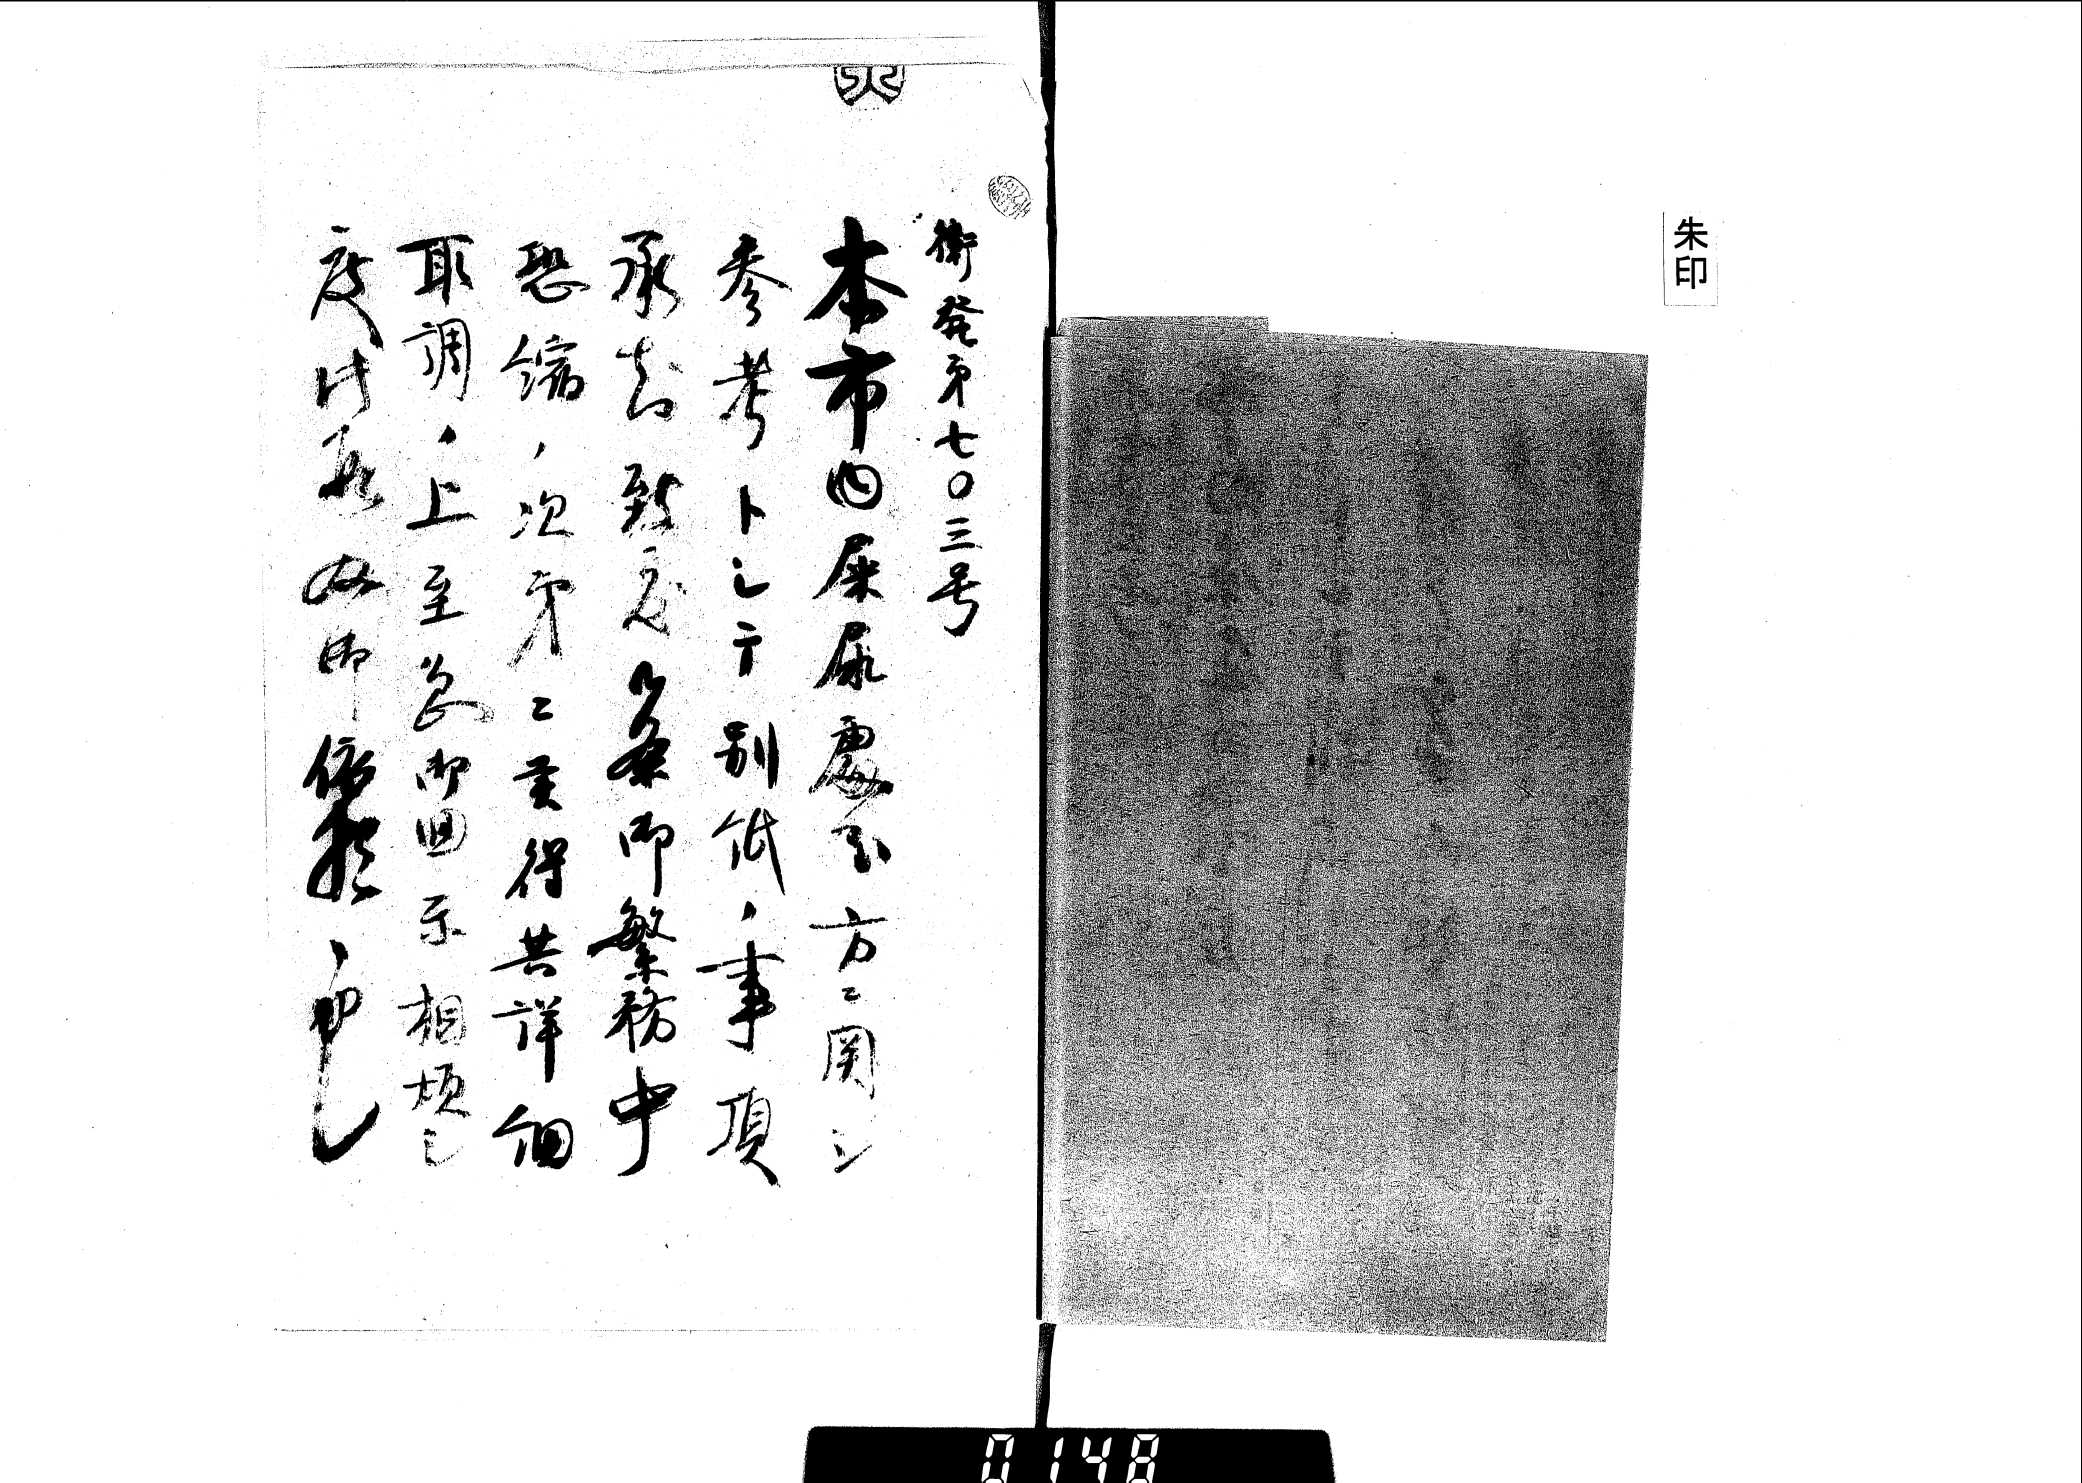 朱印
衛発第七〇三号
本市内屎尿處分方ニ関シ
参考トシテ別紙ノ事項
承知致度候条御繁務中
恐縮ノ次第ニ候得共詳細
取調ノ上至急御回示相煩シ
度此段及御依頼候也
0148